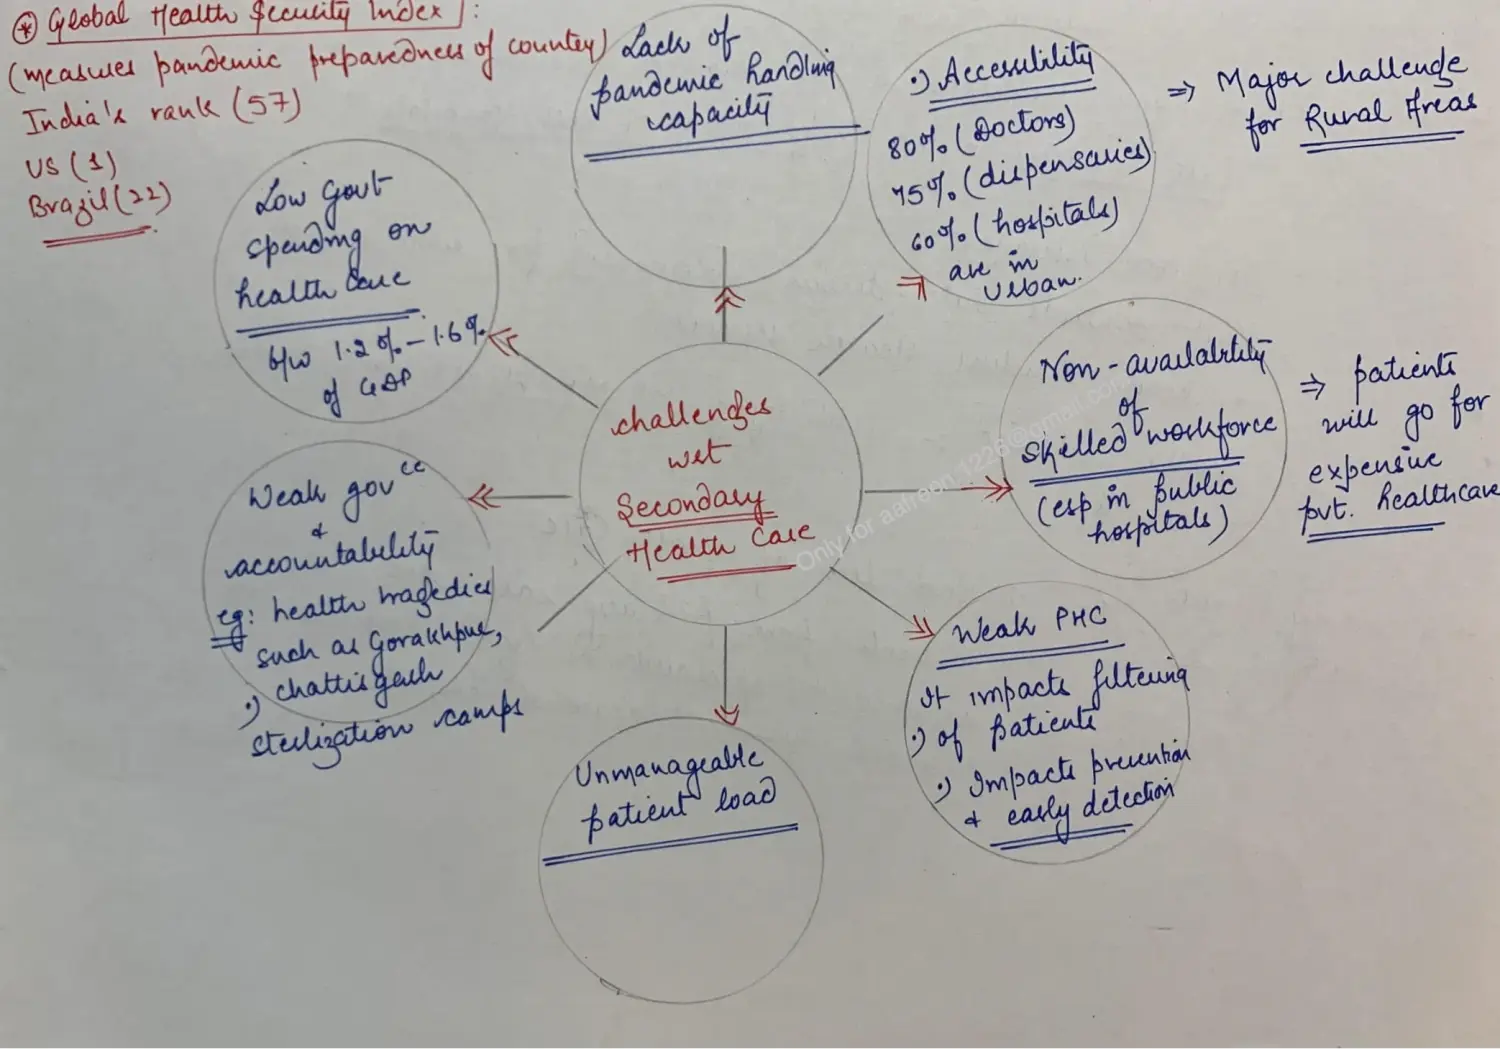 * Global Health Security Index :
(measures pandemic preparedness of country)
India's rank (57)
US (1)
Brazil (22)
Lack of
pandemic handling
capacity
·) Accessibility
80% (Doctors)
75% (dispensaries)
60% (hospitals)
are in
Urban.
⇒ Major challenge
for Rural Areas
Low Govt
spending on
health care
b/w 1.2% - 1.6%
of GDP
challenges
wrt
Secondary
Health Care
Non-availability
of
skilled workforce
(esp in public
hospitals)
⇒ patients
will go for
expensive
pvt. healthcare
Weak govce
&
accountability
eg: health tragedies
such as Gorakhpur,
chattisgarh
·) sterlization camps
Weak PHC
It impacts filtering
·) of patients
·) Impacts prevention
& early detection
Unmanageable
patient load